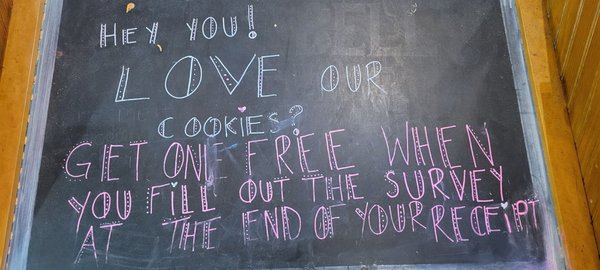 HEY YOU!
LOVE OUR
COOKiES?
GET ONE FREE WHEN
YOU FiLL OUT THE SURVEY
AT THE END OF YOUR RECEiPT